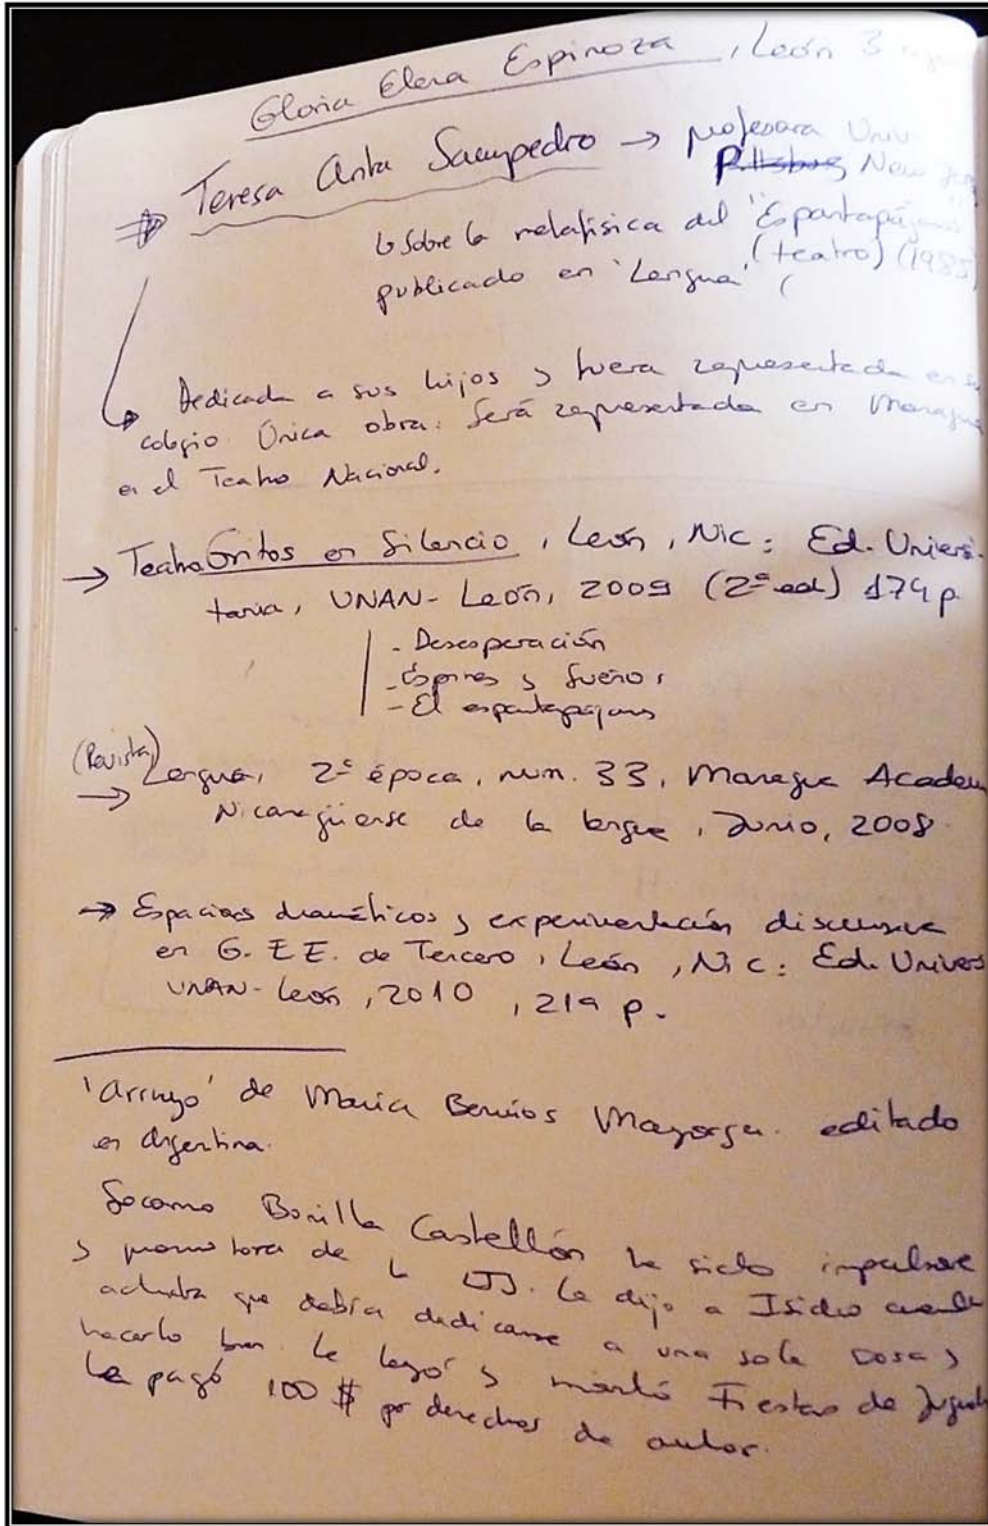 Gloria Elena Espinoza, León 3
Teresa Anta Sampedro → profesora Univ
Pittsburg New
↳ Sobre la metafísica del "Espantapájaros"
(teatro) (1985)
publicado en 'Lengua' (
Dedicada a sus hijos y fuera representada en su
colegio. Única obra. Será representada en Managua
en el Teatro Nacional.
→ Teatro Gritos en Silencio, León, Nic: Ed. Universi-
taria, UNAN-León, 2009 (2ª ed) 174 p
- Desesperación
- Espinas y Sueños
- El espantapájaros
(Revista)
→ Lengua, 2ª época, num. 33, Managua Academ
Nicaragüense de la lengua, Junio, 2008.
→ Espacios dramáticos y experimentación discursiva
en G. E E. de Tercero, León, Nic: Ed. Univers
UNAN-León, 2010, 219 p.
'Arrayo' de María Berríos Mayorga. editado
en Argentina.
Socorro Bonilla Castellón ha sido impulsore
y promotora de la LIJ. Le dijo a Isidro cuando
actuaba que debía dedicarse a una sola cosa y
hacerlo bien. Le leyó y montó Fiestas de Juguete
Le pagó 100 $ por derechos de autor.